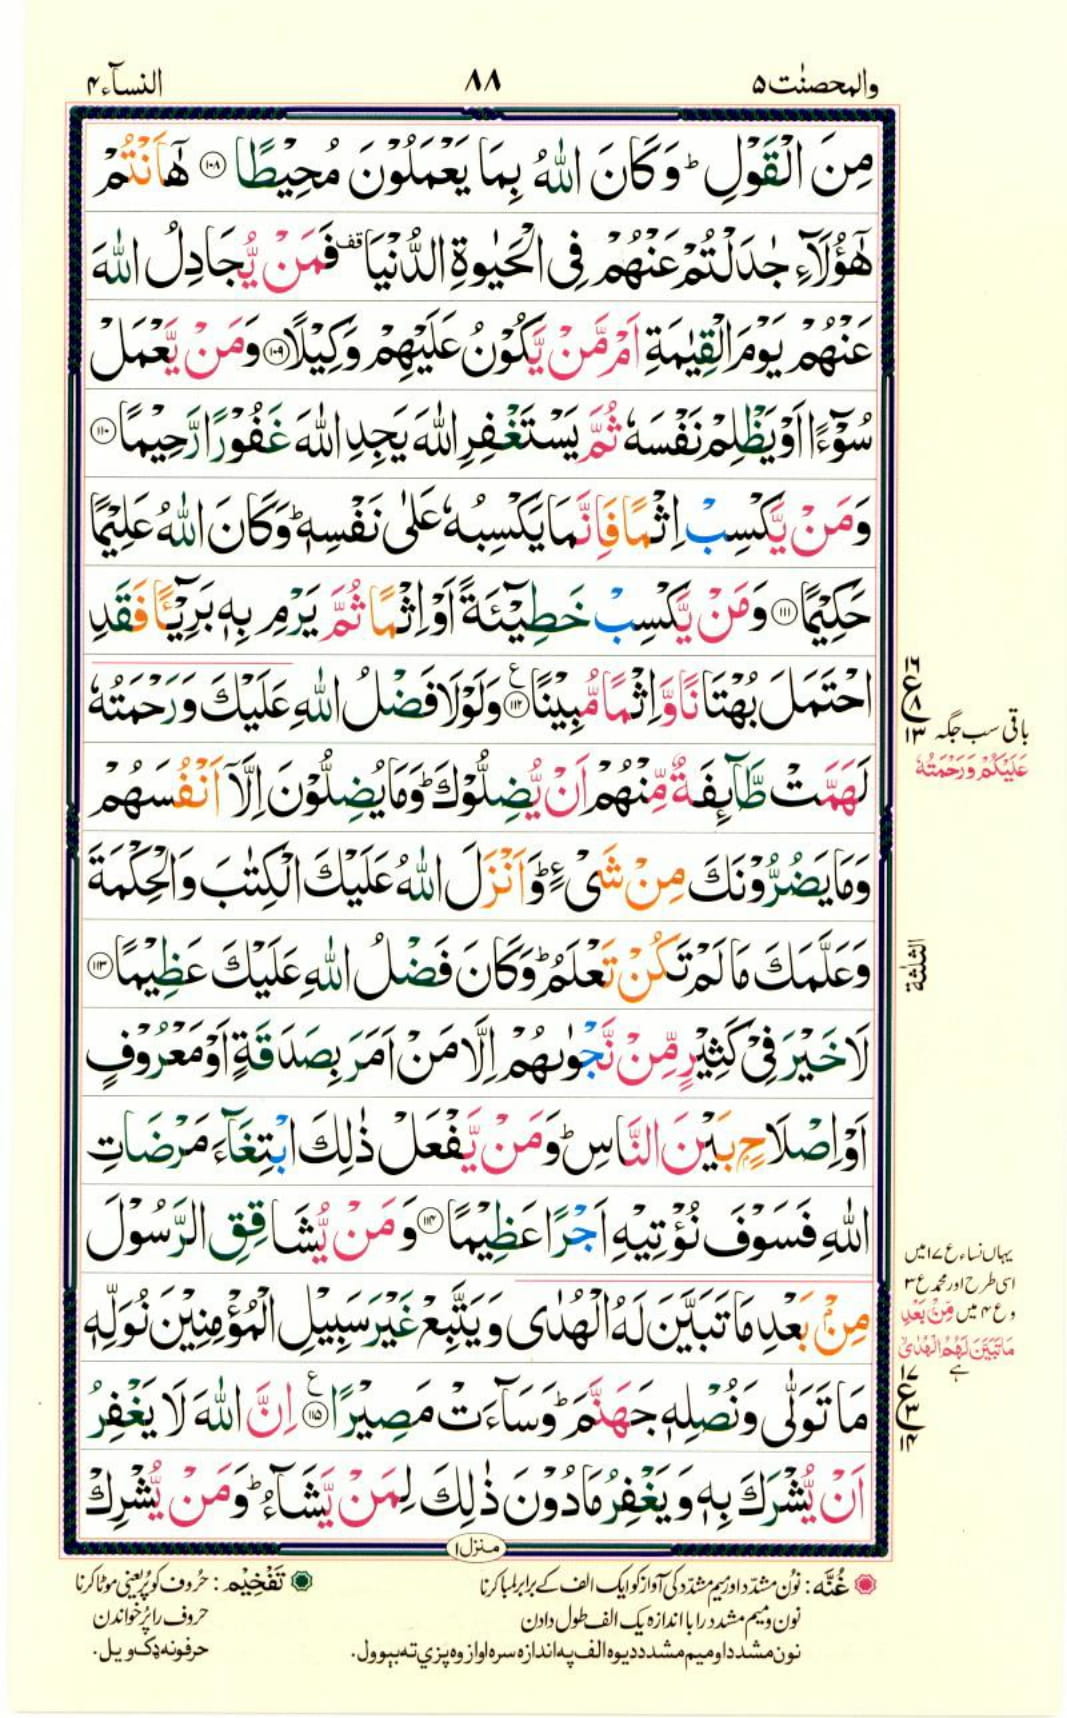 والمحصنٰت۵
۸۸
النسآء۴
مِنَ الْقَوْلِ ؕ وَكَانَ اللّٰهُ بِمَا يَعْمَلُوْنَ مُحِيْطًا ۝۱۰۸ هٰۤاَنْتُمْ
هٰٓؤُلَآءِ جٰدَلْتُمْ عَنْهُمْ فِى الْحَيٰوةِ الدُّنْيَا قف فَمَنْ يُّجَادِلُ اللّٰهَ
عَنْهُمْ يَوْمَ الْقِيٰمَةِ اَمْ مَّنْ يَّكُوْنُ عَلَيْهِمْ وَكِيْلًا ۝۱۰۹ وَمَنْ يَّعْمَلْ
سُوْٓءًا اَوْ يَظْلِمْ نَفْسَهٗ ثُمَّ يَسْتَغْفِرِ اللّٰهَ يَجِدِ اللّٰهَ غَفُوْرًا رَّحِيْمًا ۝۱۱۰
وَمَنْ يَّكْسِبْ اِثْمًا فَاِنَّمَا يَكْسِبُهٗ عَلٰى نَفْسِهٖ ؕ وَكَانَ اللّٰهُ عَلِيْمًا
حَكِيْمًا ۝۱۱۱ وَمَنْ يَّكْسِبْ خَطِيْٓئَةً اَوْ اِثْمًا ثُمَّ يَرْمِ بِهٖ بَرِيْٓئًا فَقَدِ
احْتَمَلَ بُهْتَانًا وَّاِثْمًا مُّبِيْنًا ۝۱۱۲ ع وَلَوْلَا فَضْلُ اللّٰهِ عَلَيْكَ وَرَحْمَتُهٗ
لَهَمَّتْ طَّآئِفَةٌ مِّنْهُمْ اَنْ يُّضِلُّوْكَ ؕ وَمَا يُضِلُّوْنَ اِلَّاۤ اَنْفُسَهُمْ
وَمَا يَضُرُّوْنَكَ مِنْ شَىْءٍ ؕ وَاَنْزَلَ اللّٰهُ عَلَيْكَ الْكِتٰبَ وَالْحِكْمَةَ
وَعَلَّمَكَ مَا لَمْ تَكُنْ تَعْلَمُ ؕ وَكَانَ فَضْلُ اللّٰهِ عَلَيْكَ عَظِيْمًا ۝۱۱۳
لَا خَيْرَ فِىْ كَثِيْرٍ مِّنْ نَّجْوٰىهُمْ اِلَّا مَنْ اَمَرَ بِصَدَقَةٍ اَوْ مَعْرُوْفٍ
اَوْ اِصْلَاحٍۭ بَيْنَ النَّاسِ ؕ وَمَنْ يَّفْعَلْ ذٰلِكَ ابْتِغَآءَ مَرْضَاتِ
اللّٰهِ فَسَوْفَ نُؤْتِيْهِ اَجْرًا عَظِيْمًا ۝۱۱۴ وَمَنْ يُّشَاقِقِ الرَّسُوْلَ
مِنْۢ بَعْدِ مَا تَبَيَّنَ لَهُ الْهُدٰى وَيَتَّبِعْ غَيْرَ سَبِيْلِ الْمُؤْمِنِيْنَ نُوَلِّهٖ
مَا تَوَلّٰى وَنُصْلِهٖ جَهَنَّمَ ؕ وَسَآءَتْ مَصِيْرًا ۝۱۱۵ ع اِنَّ اللّٰهَ لَا يَغْفِرُ
اَنْ يُّشْرَكَ بِهٖ وَيَغْفِرُ مَا دُوْنَ ذٰلِكَ لِمَنْ يَّشَآءُ ؕ وَمَنْ يُّشْرِكْ
منزل۱
۱۶
ع۸
۱۳
باقی سب جگہ
عَلَيْكُمْ وَرَحْمَتُهٗ
الثلٰثة
یہاں نساء ع ۱۷ میں
اسی طرح اور محمد ع ۳
و ع ۴ میں مِّنْۢ بَعْدِ
مَا تَبَيَّنَ لَهُمُ الْهُدٰى
ہے
۱۷
ع۳
۱۴
غُنَّه : نُون مشدّد اور میم مشدّد کی آواز کو ایک الف کے برابر لمبا کرنا
نون و میم مشدد را با اندازه یک الف طول دادن
نون مشدد او میم مشدد دیوه الف په اندازه سره اواز وه پزې ته بېوول.
تَفْخِيْم : حُرُوف کو پُر یعنی موٹا کرنا
حروف را پُر خواندن
حرفونه ډک ویل.